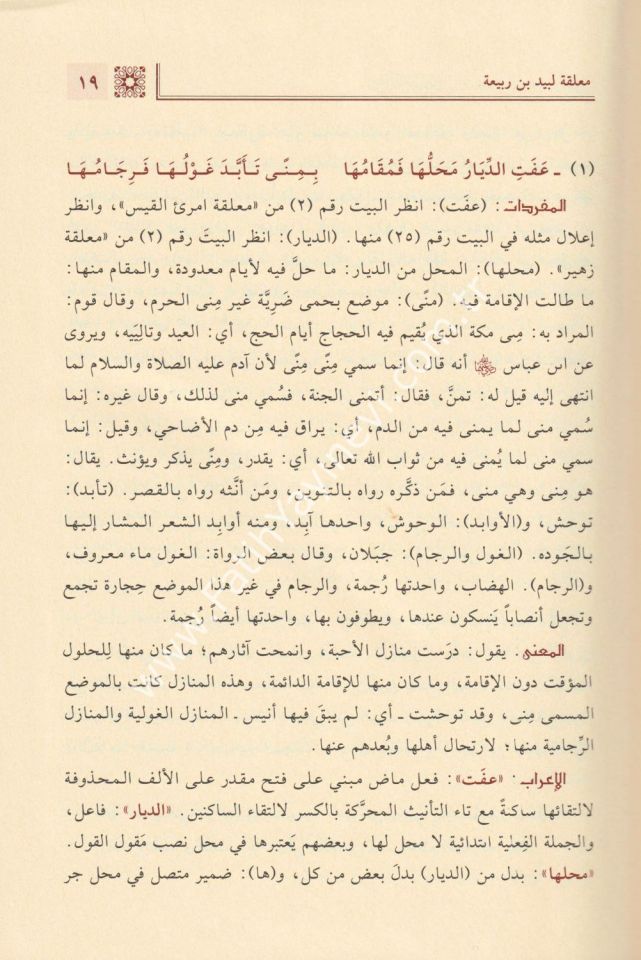 معلقة لبيد بن ربيعة ١٩
(١) ـ عَفَتِ الدِّيَارُ مَحَلُّهَا فَمُقَامُهَا بِـمِـنًـى تَـأَبَّـدَ غَـوْلُـهَـا فَـرِجَـامُـهَـا
المفردات: (عفَت): انظر البيت رقم (٢) من «معلقة امرئ القيس»، وانظر
إعلال مثله في البيت رقم (٢٥) منها. (الديار): انظر البيتَ رقم (٢) من «معلقة
زهير». (محلها): المحل من الديار: ما حلَّ فيه لأيام معدودة، والمقام منها:
ما طالت الإقامة فيه، (منًى): موضع بحمى ضَرِيَّة غير مِنى الحرم، وقال قوم:
المراد به: مِنى مكة الذي يُقيم فيه الحجاج أيام الحج، أي: العيد وتالِيَيه، ويروى
عن ابن عباس ﵄ أنه قال: إنما سمي مِنًى مِنًى لأن آدم عليه الصلاة والسلام لما
انتهى إليه قيل له: تمنَّ، فقال: أتمنى الجنة، فسُمي منى لذلك، وقال غيره: إنما
سُمي منى لما يمنى فيه من الدم، أي: يراق فيه مِن دم الأضاحي، وقيل: إنما
سمي منى لما يُمنى فيه من ثواب الله تعالى، أي: يقدر، ومِنًى يذكر ويؤنث. يقال:
هو مِنى وهي منى، فمَن ذكَّره رواه بالتنوين، ومَن أنَّثه رواه بالقصر. (تأبد):
توحش، و(الأوابد): الوحوش، واحدها آبِد، ومنه أوابِد الشعر المشار إليها
بالجَوده. (الغول والرجام): جبَلان، وقال بعض الرواة: الغول ماء معروف،
و(الرجام). الهضاب، واحدتها رُجمة، والرجام في غير هذا الموضع حِجارة تجمع
وتجعل أنصاباً يَنسكون عندها، ويطوفون بها، واحدتها أيضاً رُجمة.
المعنى. يقول: درَست منازل الأحبة، وانمحت آثارهم؛ ما كان منها لِلحلول
المؤقت دون الإقامة، وما كان منها للإقامة الدائمة، وهذه المنازل كانت بالموضع
المسمى مِنى، وقد توحشت ـ أي: لم يبقَ فيها أنيس ـ المنازل الغولية والمنازل
الرِّجامية منها؛ لارتحال أهلها وبُعدهم عنها.
الإعراب: «عفَت»: فعل ماض مبني على فتح مقدر على الألف المحذوفة
لالتقائها ساكنةً مع تاء التأنيث المحرَّكة بالكسر لالتقاء الساكنين. «الديار»: فاعل،
والجملة الفِعلية ابتدائية لا محل لها، وبعضهم يَعتبرها في محل نصب مَقول القول.
«محلها»: بدل من (الديار) بدلَ بعض من كل، و(ها): ضمير متصل في محل جر